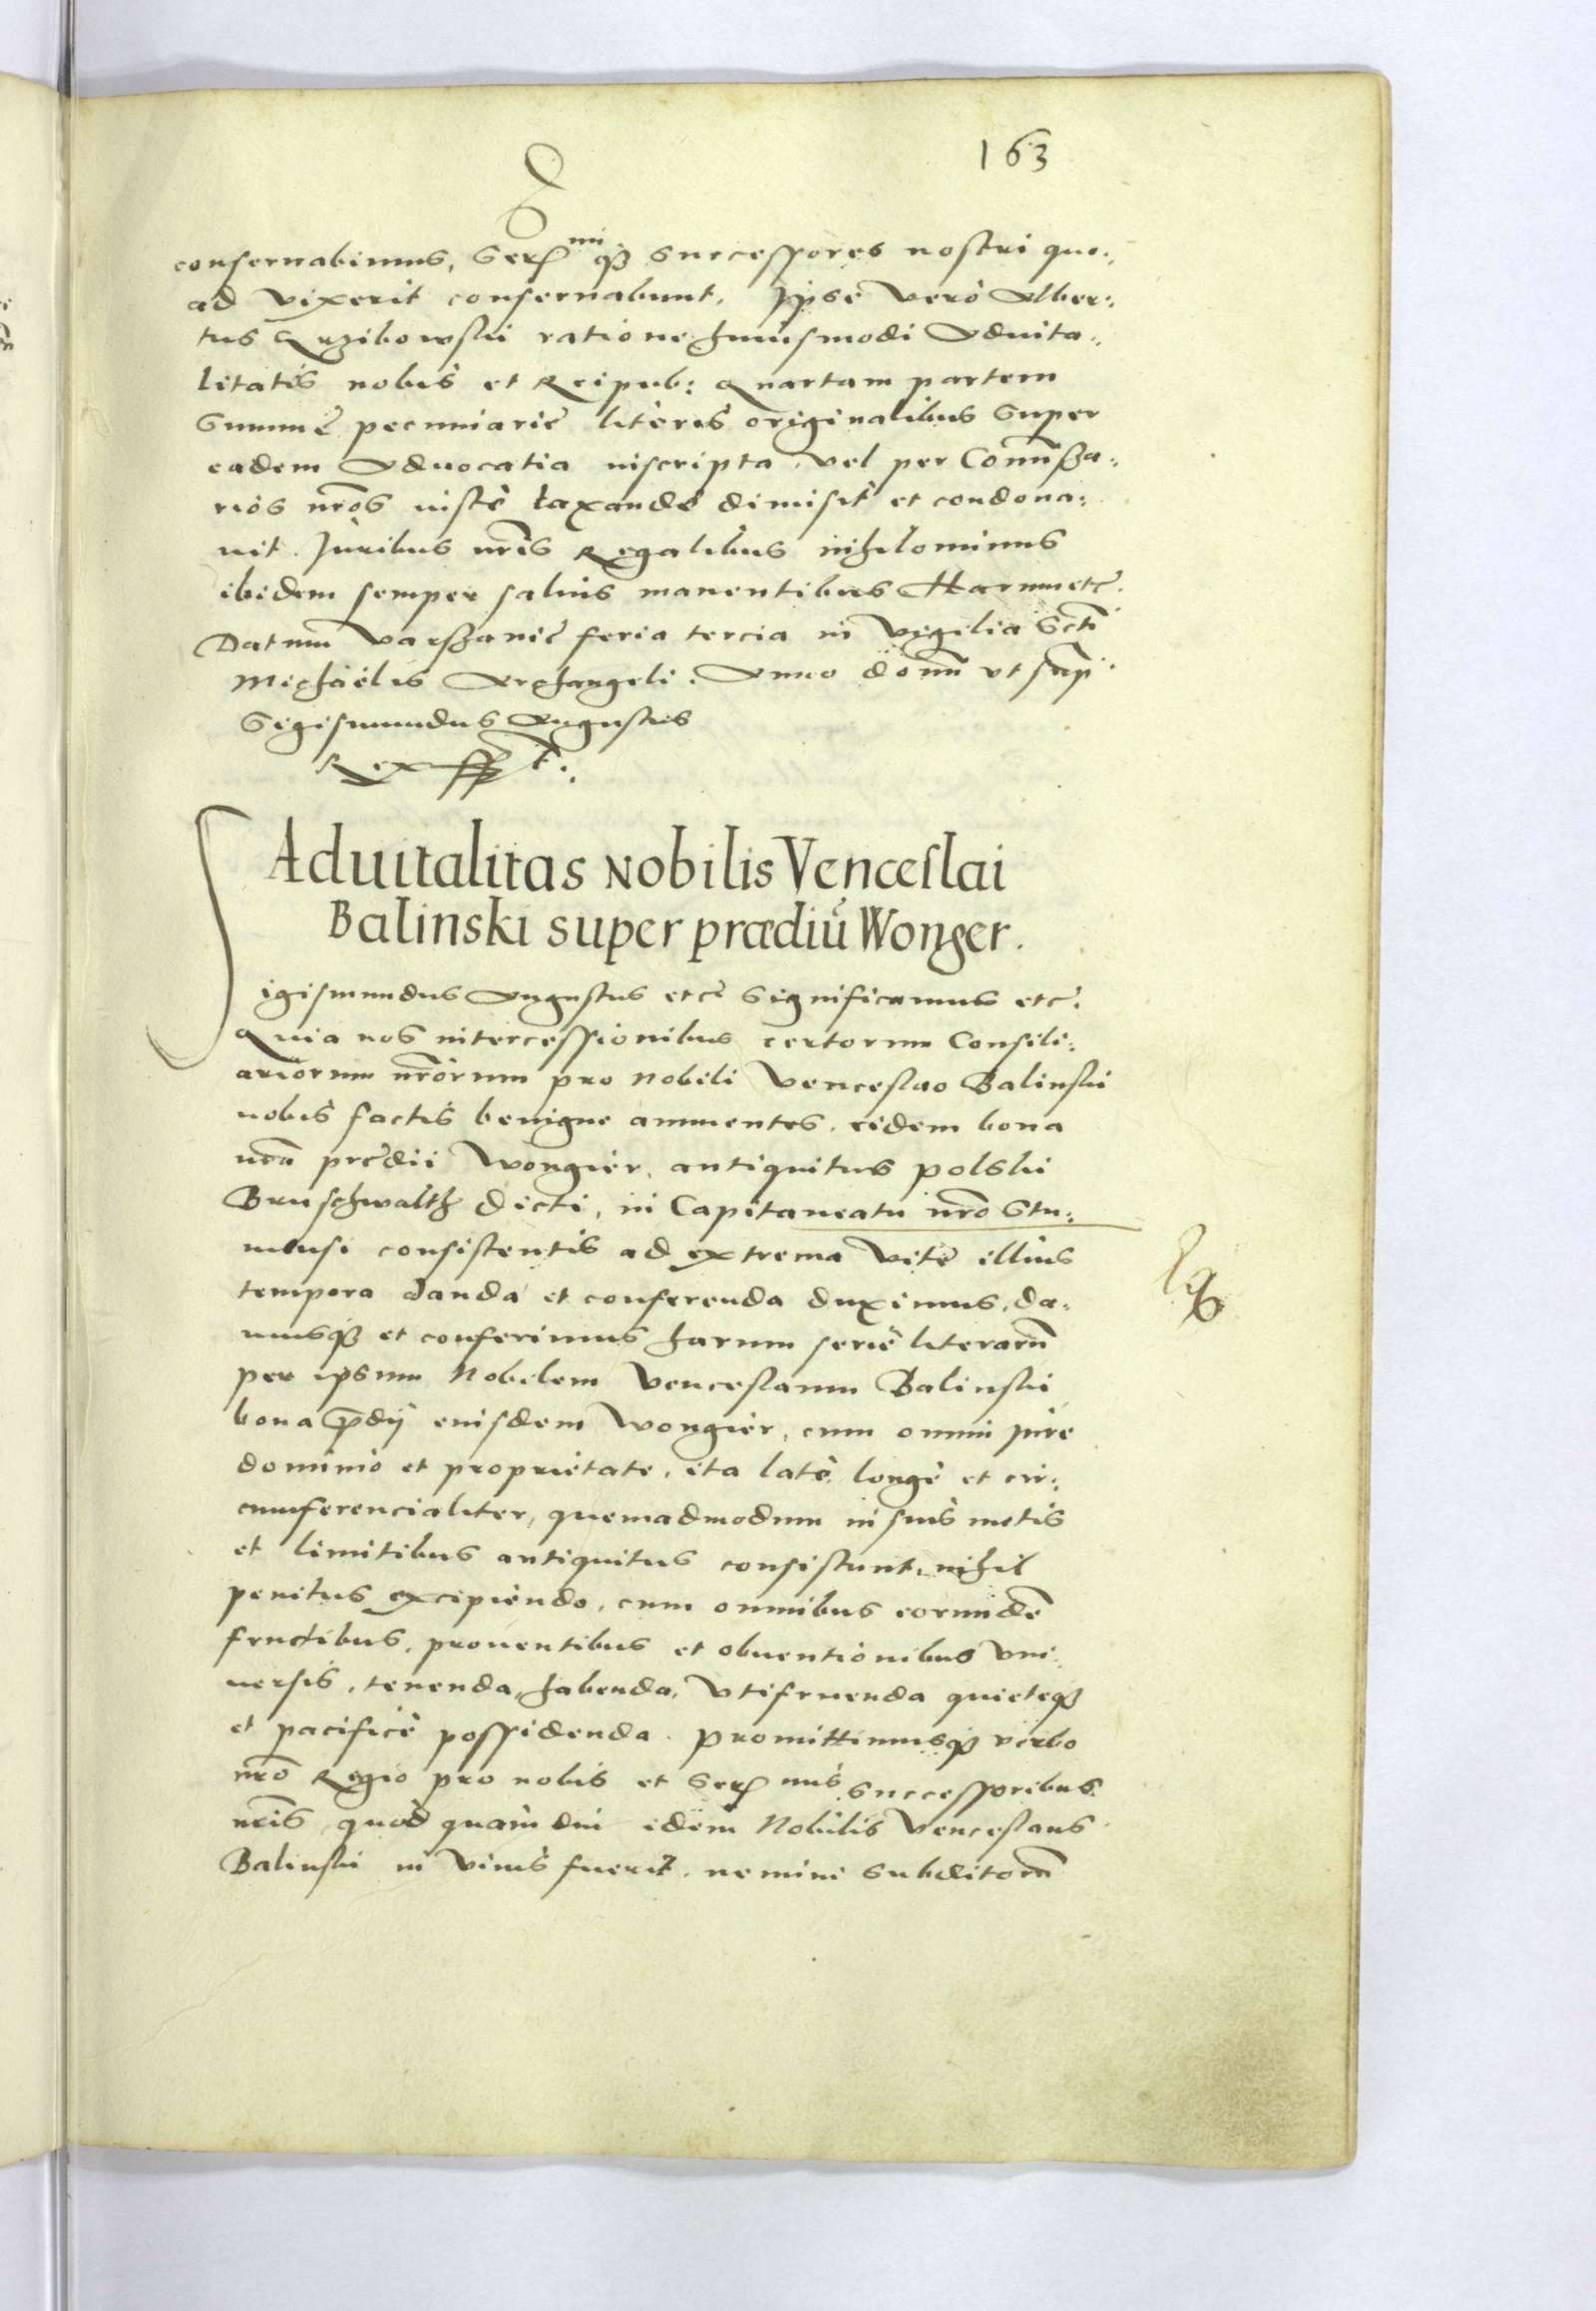 163
conseruabimus, Ser^mi q₃ successores nostri quo:,
ad vixerit conseruabunt. Ipse vero Alber:,
tus Grzibowski ratione huiusmodi Aduita:,
litatis nobis et Reipub: quartam partem
Summe pecuniarie literis originalibus super
eadem Aduocatia inscripta, vel per Comissa:,
rios nros iuste taxande dimisit et condona:,
uit. Iuribus nris Regalibus nihilominus
ibidem semper saluis manentibus Harum etc.
Datum Varssauie feria tercia in Vigilia Scti
Michaelis Archangeli. Anno domi vt sup:
Sigismundus Augustus
Rex sspt:.
Aduitalitas Nobilis Venceslai
Balinski super prædiu Wonger.
Sigismundus Augustus etc Significamus etc.
Quia nos intercessionibus certorum Consili:,
ariorum nrorum pro Nobili Venceslao Balinski
nobis factis benigne annuentes, eidem bona
nra predii Wongier, antiquitus polski
Bruschwalth dicti, in Capitaneatu nro Stu:,
mensi consistentis ad extrema vite illius
tempora danda et conferenda duximus, da:,
musq₃ et conferimus harum serie literaru
per ipsum Nobilem Venceslaum Balinski
bona pdij euisdem Wongier, cum omni iure
dominio et proprietate, ita late, longe et cir:,
cumferencialiter, quemadmodum in suis metis
et limitibus antiquitus consistunt, nihil
penitus excipiendo, cum omnibus eorumde
fructibus, prouentibus et obuentionibus vni:,
uersis, tenenda, habenda, vtifruenda quieteq₃
et pacifice possidenda. Promittimusq₃ verbo
nro Regio pro nobis et Ser mis successoribus
nris, quod quam diu idem Nobilis Venceslaus
Balinski in viuis fuerit, nemini subditoru